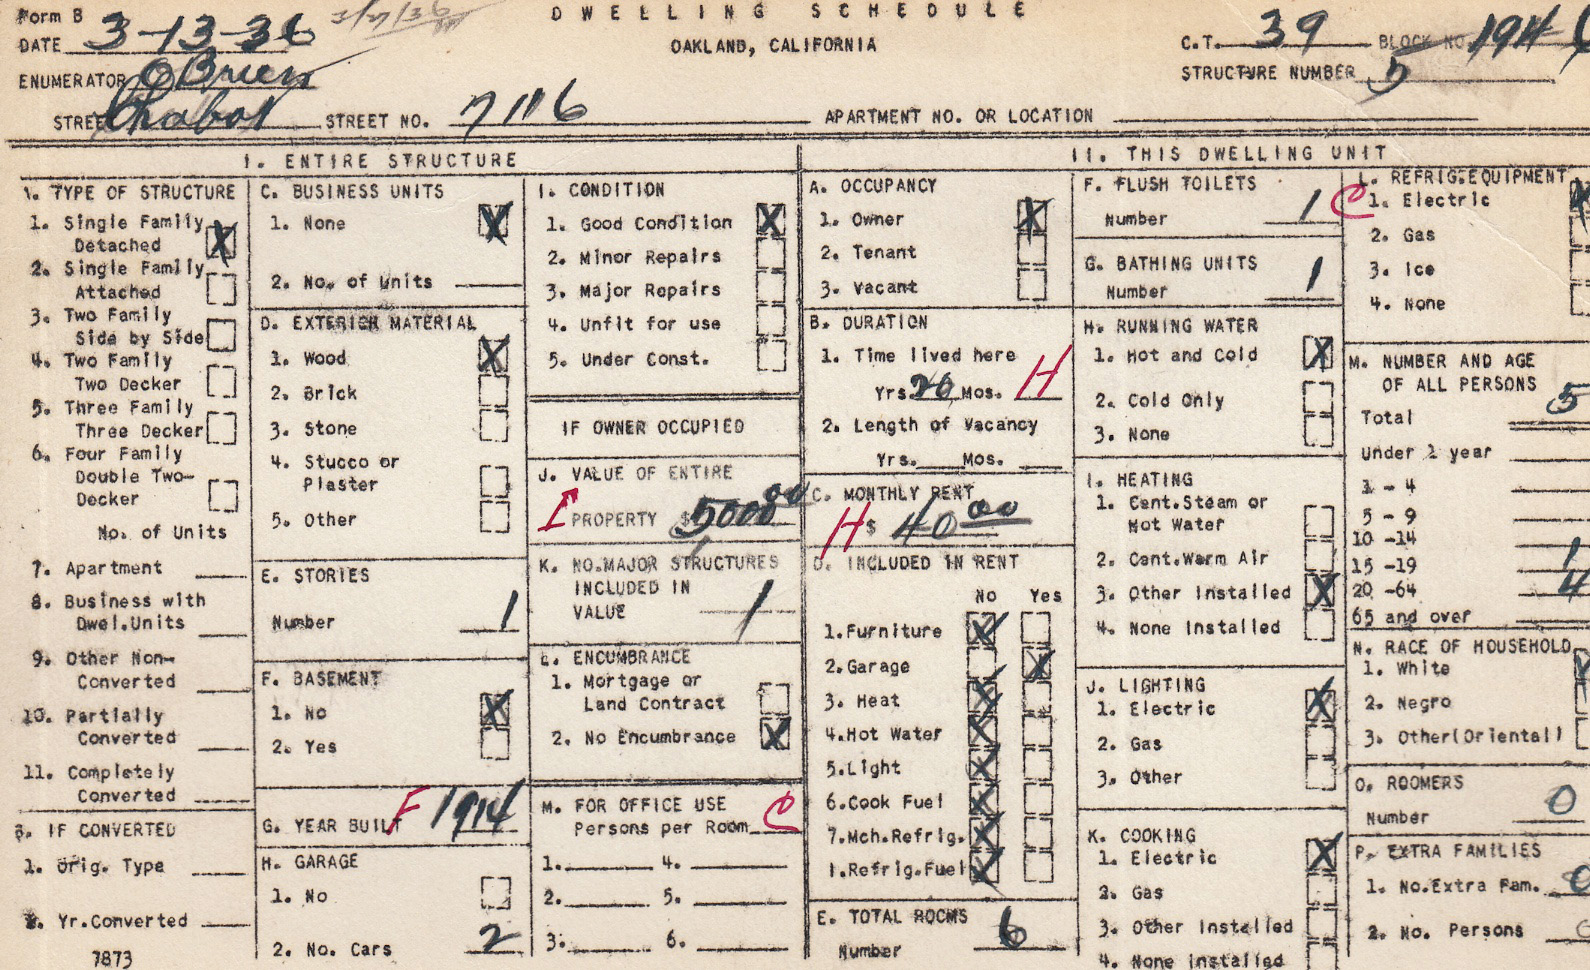 Form B
3/7/36
DWELLING SCHEDULE
OAKLAND, CALIFORNIA
DATE 3-13-36
C.T. 39 BLOCK NO.
ENUMERATOR O'Brien
STRUCTURE NUMBER 5
STREET Chabot STREET NO. 7116 APARTMENT NO. OR LOCATION
I. ENTIRE STRUCTURE
A. TYPE OF STRUCTURE
1. Single Family
Detached X
2. Single Family
Attached
3. Two Family
Side by Side
4. Two Family
Two Decker
5. Three Family
Three Decker
6. Four Family
Double Two-
Decker
No. of Units
7. Apartment
8. Business with
Dwel.Units
9. Other Non-
Converted
10. Partially
Converted
11. Completely
Converted
B. IF CONVERTED
1. Orig. Type
2. Yr.Converted
7873
C. BUSINESS UNITS
1. None X
2. No. of Units
D. EXTERIOR MATERIAL
1. Wood X
2. Brick
3. Stone
4. Stucco or
Plaster
5. Other
E. STORIES
Number 1
F. BASEMENT
1. No X
2. Yes
G. YEAR BUILT F 1914
H. GARAGE
1. No
2. No. Cars 2
I. CONDITION
1. Good Condition X
2. Minor Repairs
3. Major Repairs
4. Unfit for use
5. Under Const.
IF OWNER OCCUPIED
J. VALUE OF ENTIRE
PROPERTY $5000 00
K. NO.MAJOR STRUCTURES
INCLUDED IN
VALUE 1
L. ENCUMBRANCE
1. Mortgage or
Land Contract
2. No Encumbrance X
M. FOR OFFICE USE
Persons per Room C
1. 4.
2. 5.
3. 6.
II. THIS DWELLING UNIT
A. OCCUPANCY
1. Owner X
2. Tenant
3. Vacant
B. DURATION
1. Time lived here
Yrs. 20 Mos. H
2. Length of Vacancy
Yrs. Mos.
C. MONTHLY RENT
H $ 40 00
D. INCLUDED IN RENT
No Yes
1.Furniture X
2.Garage X
3. Heat X
4.Hot Water X
5.Light X
6.Cook Fuel X
7.Mch.Refrig. X
1.Refrig.Fuel X
E. TOTAL ROOMS
Number 6
F. FLUSH TOILETS
Number 1
G. BATHING UNITS
Number 1
H. RUNNING WATER
1. Hot and Cold X
2. Cold Only
3. None
I. HEATING
1. Cent.Steam or
Hot Water
2. Cent.Warm Air
3. Other Installed X
4. None Installed
J. LIGHTING
1. Electric X
2. Gas
3. Other
K. COOKING
1. Electric X
2. Gas
3. Other Installed
4. None Installed
L. REFRIG.EQUIPMENT
C 1. Electric X
2. Gas
3. Ice
4. None
M. NUMBER AND AGE
OF ALL PERSONS
Total 5
Under 1 year
1 - 4
5 - 9
10 -14
15 -19 1
20 -64 4
65 and over
N. RACE OF HOUSEHOLD
1. White X
2. Negro
3. Other(Oriental)
O. ROOMERS
Number 0
P. EXTRA FAMILIES
1. No.Extra Fam. 0
2. No. Persons 0